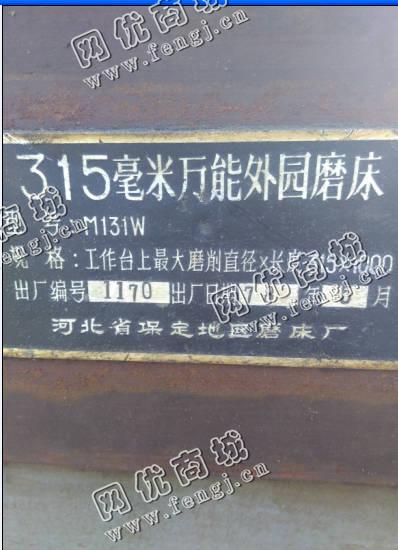 网优商城
www.fengj.cn
315毫米万能外园磨床
号 M131W
规格:工作台上最大磨削直径×长度315×1000
出厂编号 1170 出厂日期 7 年 月
河北省保定地区磨床厂
网优商城
www.fengj.cn
网优商城
www.fengj.cn